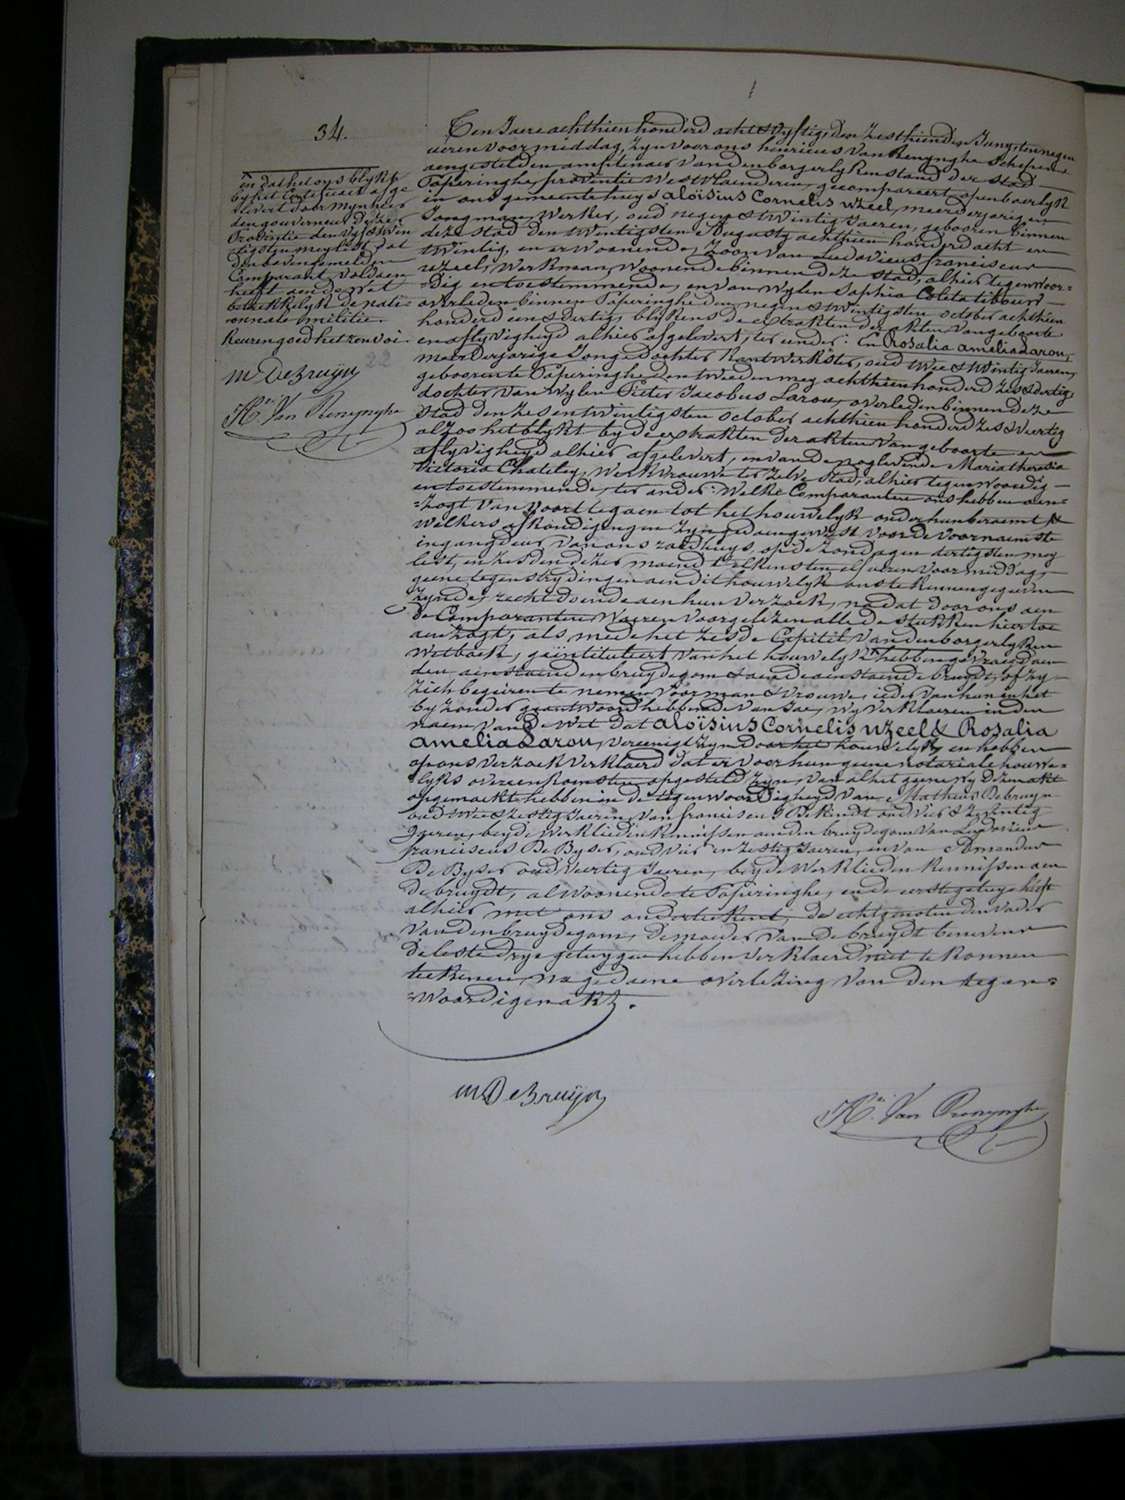 34.
en dat het ons blykt
by het certificaet afge-
levert door mynheer
den gouverneur dezer
Provintie den vyfentwin
tigsten mey lest, dat
den bovengemelden
Comparant, voldaen
heeft aen de wet
betrekkelyk de nati-
onnale militie.
Keuren goed het zenvoi
m DeBruÿn
H.ri Van Renynghe
Ten Jaere achthien honderd acht & vyftig, den zesthienden Juny, ten negen
ueren voormiddag, zyn voor ons henricus Van Renynghe Schepene
aengestelden amptenaer van den borgerlyken stand der stad
Poperinghe, provintie Westvlaenderen, gecompareert openbaerlyk
in ons gemeente huys aloïsius Cornelis wzeel, meerderjarigen
Jongman, Werker, oud negen & twintig Jaeren, gebooren binnen
deze stad den twintigsten Augusty achthien honderd acht en
twintig, en er woonende, Zoon van Ludovicus franciscus
wzeel, Werkman, woonende binnen deze stad, alhier tegenwoor-
dig en toestemmende, en van wylen Sophia Coleta
overleden binnen Poperinghe den negen & twintigsten october achthien
honderd een & dertig, blykens de extrakten der akten van geboorte
en aflyvigheyd alhier afgelevert, ter eender: En Rosalia amelia Larou,
meerderjarige Jonge dochter Kantwerkster, oud twee & twintig Jaeren,
gebooren te Poperinghe den tweeden mey achthien honderd zes & dertig,
dochter van wylen Pieter Jacobus Larou, overleden binnen deze
stad den zesentwintigsten october achthien honderd zes & veertig
alzoo het blykt by de extrakten der akten van geboorte en
aflyvigheyd alhier afgelevert, en van de nog levende Maria theresia
Victoria Werkvrouwe ter zelve stad, alhier tegenwoordig
en toestemmende, ter ander: Welke Comparanten ons hebben aen-
=zogt van voort te gaen tot het houwelyk onder hun beraemt &
welkers afkondigingen zyn gedaen geweest voor de voornaemste
ingang deur van ons raedhuys, op de zondagen dertigsten mey
lest, en zesden dezer maend t'elkens ten elf ueren voormiddag,
geene tegenstrydingen aen dit houwelyk ons te kennen gegeven
zynde, recht doende aen hun verzoek, nadat door ons aen
de Comparanten waeren voorgelezen alle de stukken hiertoe
aenzogt, als mede het zesde Capittel van den borgerlyken
Wetboek, geïntituleert van het houwelyk hebben gevraegd aen
den aenstaenden bruydegom & aen de aenstaende bruydt, of zy
zich begeiren te nemen voor man & vrouwe, ieder van hun in het
byzonder geantwoord hebbende van Jae, wy verklaeren in den
naem van de Wet dat aloïsius Cornelis wzeel & Rosalia
amelia Larou, vereenigt zyn door het houwelyk, en hebben
op ons verzoek verklaerd dat er voor hun geene notariale houwe-
lyks overeenkomsten opgesteld zyn, van al het geene wy dezen akt
opgemaekt hebben in de tegenwoordigheyd van Mathias Debruyn
oud twee & zestig Jaeren, van franciscus Bekindt oud vier & twintig
Jaeren, beyde Werklieden kennissen aen den bruydegom, van Ludovicus
franciscus De Byser, oud vier en zestig Jaeren, en van Amandus
De Byser oud veertig Jaeren, beyde Werklieden kennissen aen
de bruydt, al woonende te Poperinghe, en de eerste getuyge heeft
alhier met ons onderteekent, de echtgenoten den vader
van den bruydegom, de moeder van de bruydt benevens
de leste drye getuygen hebben verklaerd niet te konnen
teekenen, na gedaene overlezing van den tegen=
=woordigen akt.
m DeBruÿn
H.ri Van Renynghe